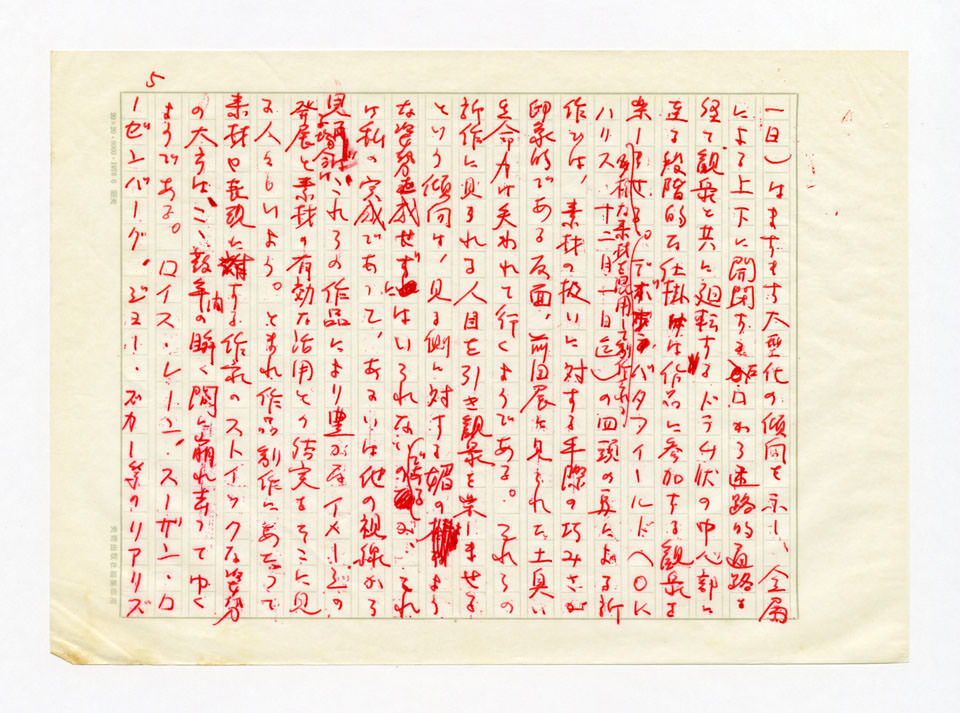 5
一日)はますます大型化の傾向を示し、金属
による上下に開閉する口わる迷路的通路を
経て観客と共に廻転するドラム状の中心部に
達する段階的な仕掛は作品に参加する観客を
楽しませる。デボラ・バタフィールド(OK
多様な素材を混用して制作される
ハリス 十二月一日迄)の四頭の馬による新
作では、素材の扱いに対する手際の巧みさが
印象的である反面、前回展に見られた土臭い
生命力は失われて行くようである。それらの
新作に見られる人目を引き観客を楽しませる
という傾向は、見る側に対する媚のよう
な姿勢を感じさせずにはいられないが、それ
は私の完成であって、あるいは他の視線から
見れば、これらの作品により豊かなイメージの
発展と素材の有効な活用との結実をそこに見
る人々もいよう。ともあれ作品制作にあたって
素材や表現に対する作家のストイックな姿勢
の大方は、ここ数年の瞬く間に崩れ去ってゆく
ようである。ロイス・レーン、スーザン・ロ
ーゼンバーグ、ジョー・ズカー等のリアリズ